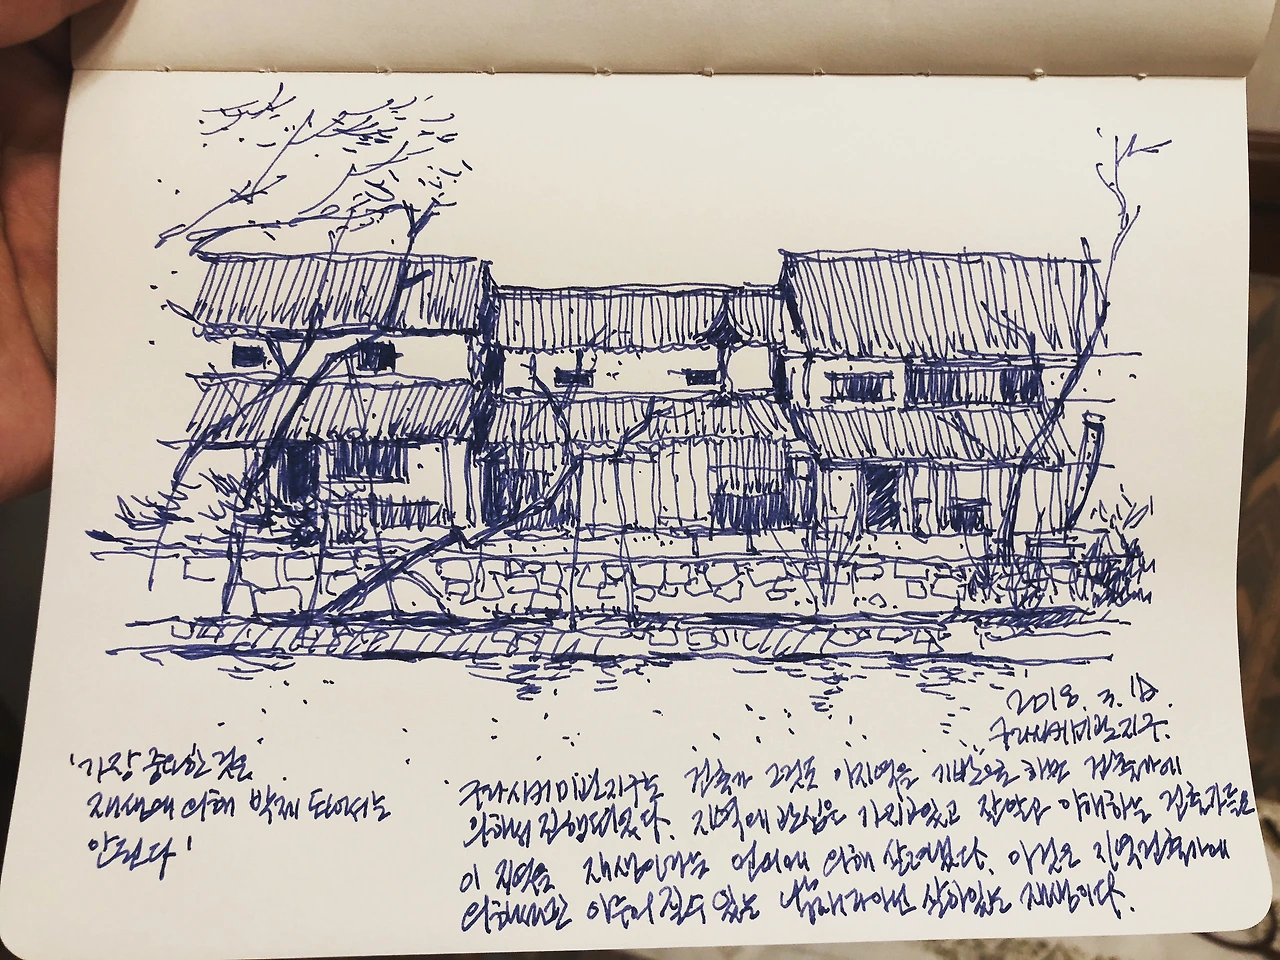 2018. 3. 18.
구라시키미관지구.
'가장 중요한 것은
재생에 의해 박제 되어서는
안된다'
구라시키미관지구는 건축가 그것도 이지역을 기반으로 하는 건축가에
의해서 진행되었다. 지역에 관심을 가지고있고 잘알고 이해하는 건축가들로
이 지역을 재생이라는 언어에 의해 살려냈다. 이것은 지역건축가에
의해서만 이루어 질수 있는 살아있는 재생이다.